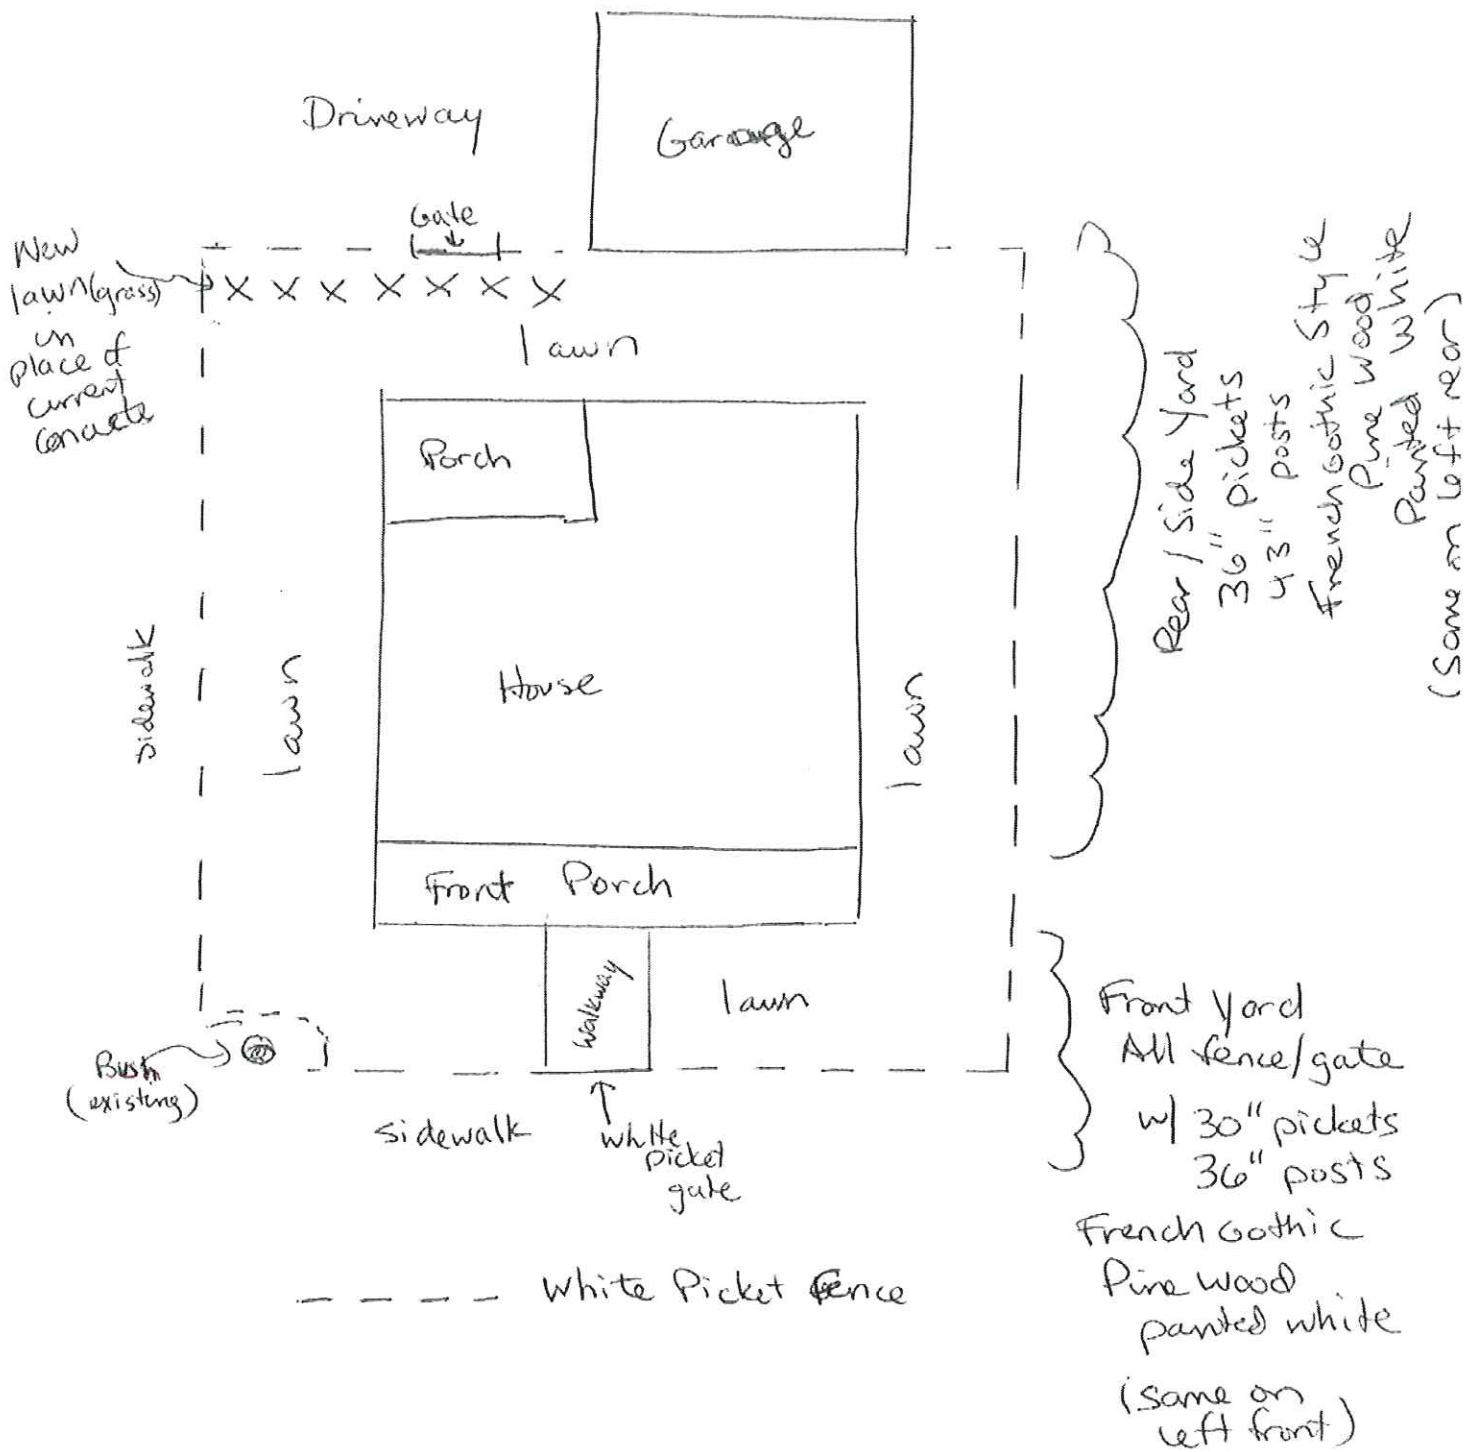 Driveway
Garage
Gate
New
lawn(grass)
in
place of
current
concrete
X X X X X X X
lawn
Porch
House
sidewalk
lawn
lawn
Front Porch
Walkway
lawn
Bush
(existing)
sidewalk
white
picket
gate
Rear / Side Yard
36" pickets
43" posts
French Gothic Style
Pine Wood
Painted White
(Same on left rear)
Front Yard
All fence/gate
w/ 30" pickets
36" posts
French Gothic
Pine Wood
painted white
(same on
left front)
---- White Picket Fence